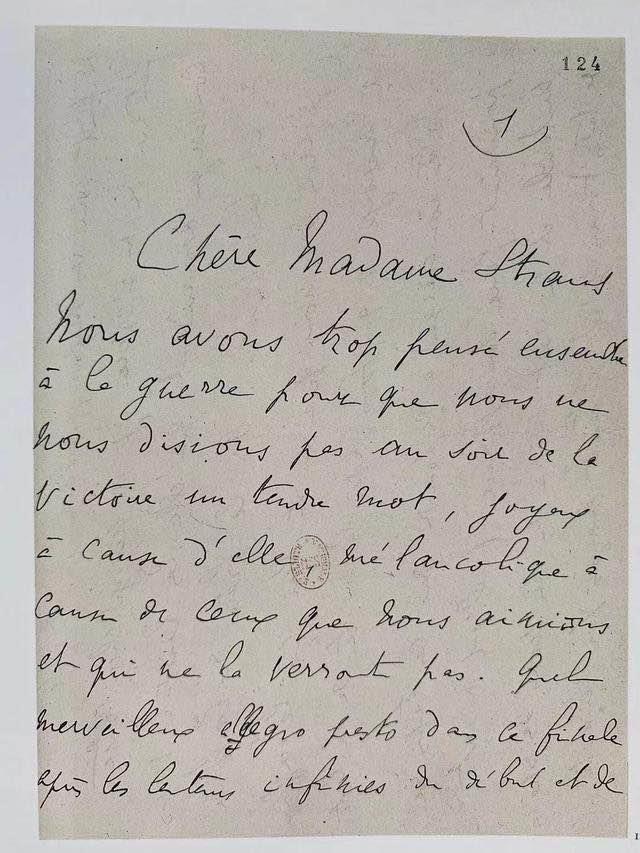 124
1
Chère Madame Straus
Nous avons trop pensé ensemble
à la guerre pour que nous ne
nous disions pas au soir de la
Victoire un tendre mot, joyeux
à cause d'elle mélancolique à
cause de ceux que nous aimions
et qui ne la verront pas. Quel
merveilleux allegro presto dans ce finale
après les lenteurs infinies du début et de